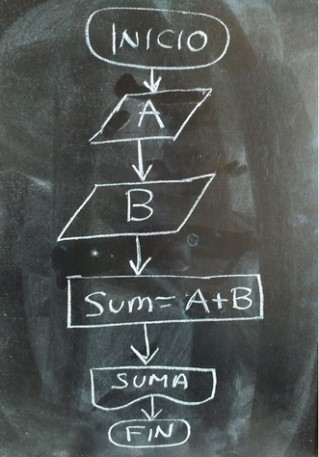 INICIO
A
B
Sum= A+B
SUMA
FIN